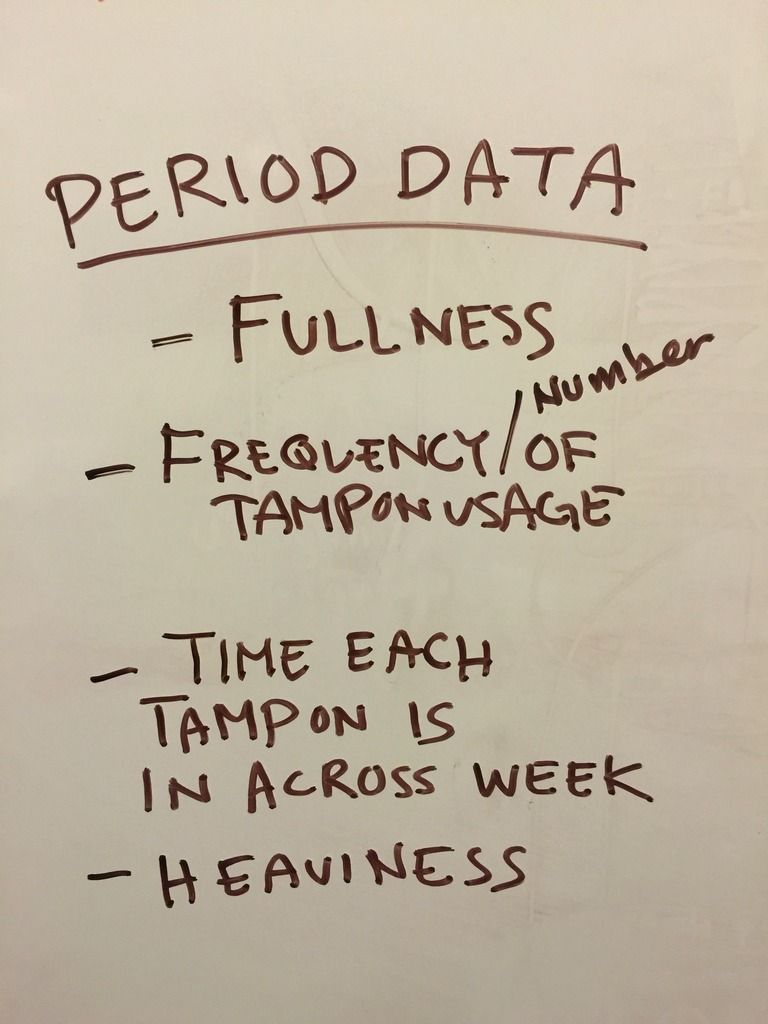 PERIOD DATA
- FULLNESS
- FREQUENCY/NUMBER OF
TAMPON USAGE
- TIME EACH
TAMPON IS
IN ACROSS WEEK
- HEAVINESS